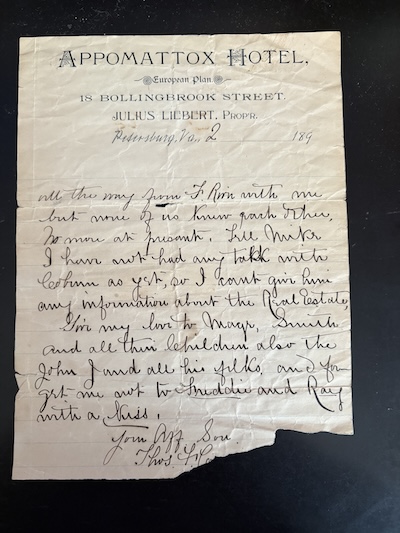 APPOMATTOX HOTEL,
European Plan.
18 BOLLINGBROOK STREET.
JULIUS LIEBERT, PROP'R.
Petersburg, Va., 2 189
all the way from F. with me
but none of us knew each other,
No more at present. Tell
I have not had any talk with
as yet, so I cant give him
any information about the Real Estate,
Give my love to Smith
and all their Children also the
John J and all his folks, and for
get me not to Freddie and Ray
with a Kiss.
Your Aff Son
Thos.